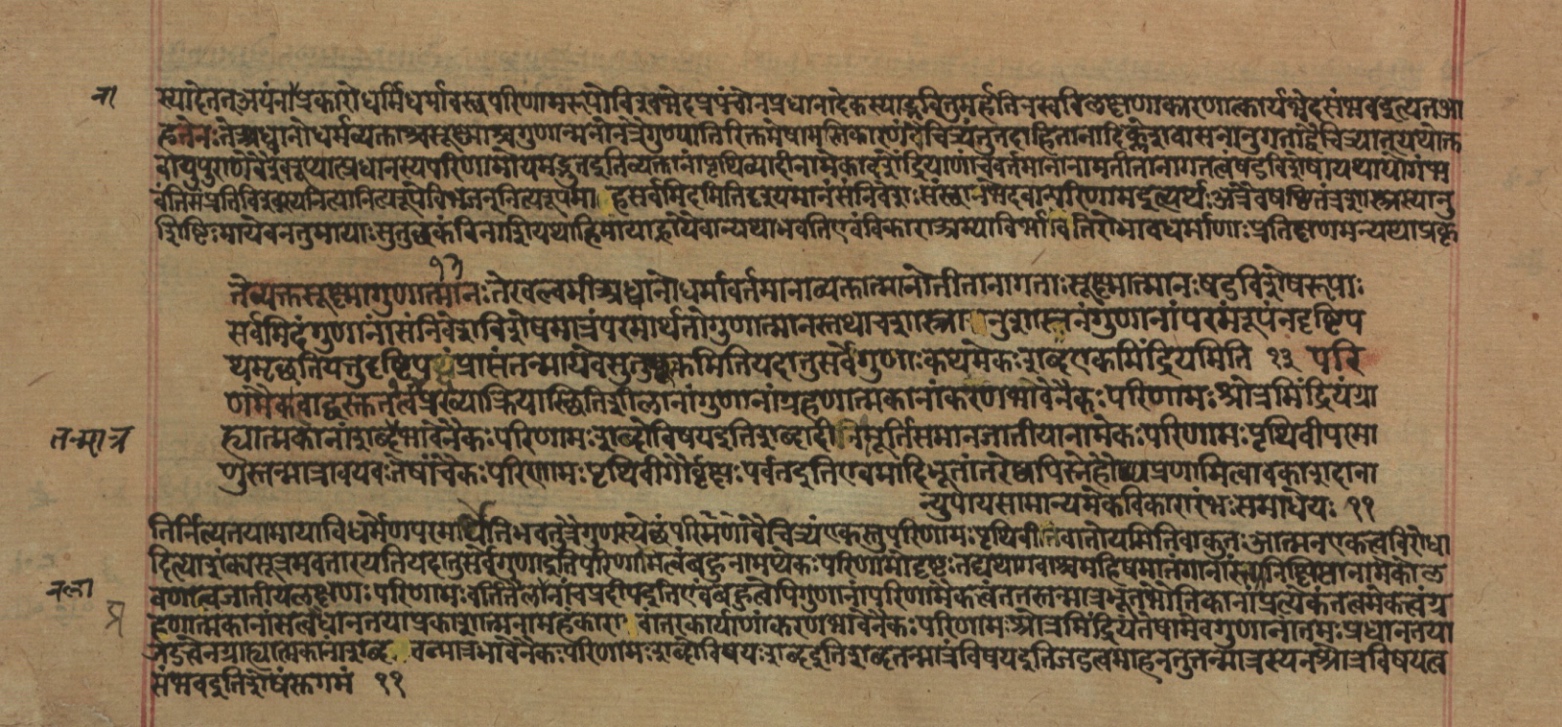 त्रा
स्यादेतत्अयंनाप्रकारोधर्मिधर्मावस्थापरिणामरूपोविश्वभेदप्रपंचोनप्रधानादेकस्माद्भवितुमर्हतिनह्यविलक्षणात्कारणात्कार्यभेदसंभवइत्यतआ
हतेनःतेत्र्यध्वानोधर्मव्यक्ताश्चसूक्ष्माश्चगुणात्मानोनत्रैगुण्यातिरिक्तमेषामस्तिकारणंवैचित्र्यंतुतदाहितानादिक्लेशवासनानुगताद्वैचित्र्यात्यथोक्तं
वायुपुराणेवैश्वरूप्यात्प्रधानस्यपरिणामोयमद्भुतइतिव्यक्तानांपृथिव्यादीनामेकादशेंद्रियाणांचवर्तमानानामतीतानागतत्वंषडविशेषायथायोगंभ
वंतिसंप्रतिविश्वस्यनित्यानित्यरूपेविभजन्नित्यरूपमाहसर्वमिदमितिदृश्यमानंसंनिवेशःसंस्थानभेदवान्परिणामइत्यर्थःअत्रैवषष्ठितंत्रशास्त्रस्यानु
शिष्टिःमायेवनतुमायाःसुतुच्छकंविनाशियथाहिमायाह्नायैवान्यथाभवतिएवंविकाराअप्याविर्भावतिरोभावधर्माणःप्रतिक्षणमन्यथाप्रकृ
१३
तेव्यक्तसूक्ष्मागुणात्मानःतेखल्वमीत्र्यध्वानोधर्मावर्तमानाव्यक्तात्मानोतीतानागताःसूक्ष्मात्मानःषडविशेषरूपाः
सर्वमिदंगुणानांसंनिवेशविशेषमात्रंपरमार्थतोगुणात्मानस्तथाचशास्त्रानुशासनंगुणानांपरमंरूपंनदृष्टिप
थमृछतियत्तुदृष्टिपथंप्राप्तंतन्मायेवसुतुच्छकमितियदातुसर्वेगुणाःकथमेकःशब्दएकमिंद्रियमिति १३ परि
णामैकत्वाद्वस्तुतत्त्वंप्रख्याक्रियास्थितिशीलानांगुणानांग्रहणात्मकानांकरणभावेनैकःपरिणामःश्रोत्रमिंद्रियंग्रा
तन्मात्र
ह्यात्मकानांशब्दभावेनैकःपरिणामःशब्दोविषयइतिशब्दादीनांमूर्तिसमानजातीयानामेकःपरिणामःपृथिवीपरमा
णुस्तन्मात्रावयवःतेषांचैकःपरिणामःपृथिवीगौर्वृक्षःपर्वतइतिएवमादिभूतांतरेष्वपिस्नेहौष्ण्यप्रणामित्वावकाशदाना
न्युपादायसामान्यमेकविकारारंभःसमाधेयः ११
तिर्नित्यतयामायाविधर्मेणपरमार्थेतिभवतुत्रैगुणस्येत्थंपरिमणोवैचित्र्यंएकस्तुपरिणामःपृथिवीतिवातोयमितिवाकुतःआत्मनएकत्वविरोधा
दित्याशंक्यसूत्रमवतारयतियदातुसर्वेगुणाइतिपरिणामित्वंबहूनामप्येकःपरिणामोदृष्टःतद्यथागवाश्वमहिषमातंगानांरुमानिक्षिप्तानामेकोल
त्रला
वणत्वजातीयलक्षणःपरिणामःवर्तितैलानांचप्रदीपइतिएवंबहुत्वेपिगुणानांपरिणामैकत्वंततस्तन्मात्रभूतभौतिकानांप्रत्येकंतत्वमेकत्वंग्र
हणात्मकानांसत्वप्रधानतयाप्रकाशात्मनामहंकारावांतरकार्याणांकरणभावेनैकःपरिणामःश्रोत्रमिंद्रियंतेषामेवगुणानांतमःप्रधानतया
जडत्वेनग्राह्यात्मकानांशब्दतन्मात्रभावेनैकःपरिणामःशब्दोविषयःशब्दइतिशब्दतन्मात्रंविषयइतिजडत्वमाहनतुतन्मात्रस्यनश्रोत्रविषयत्व
संभवइतिशेषंसुगमं ११